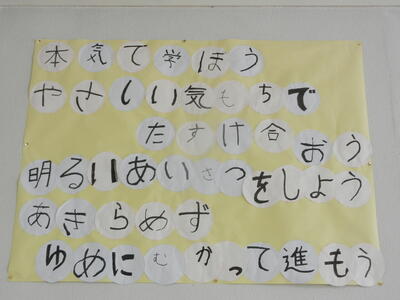 本気で学ほう
やさしい気もちで
たすけ合おう
明るいあいさつをしよう
あきらめず
ゆめにむかって進もう